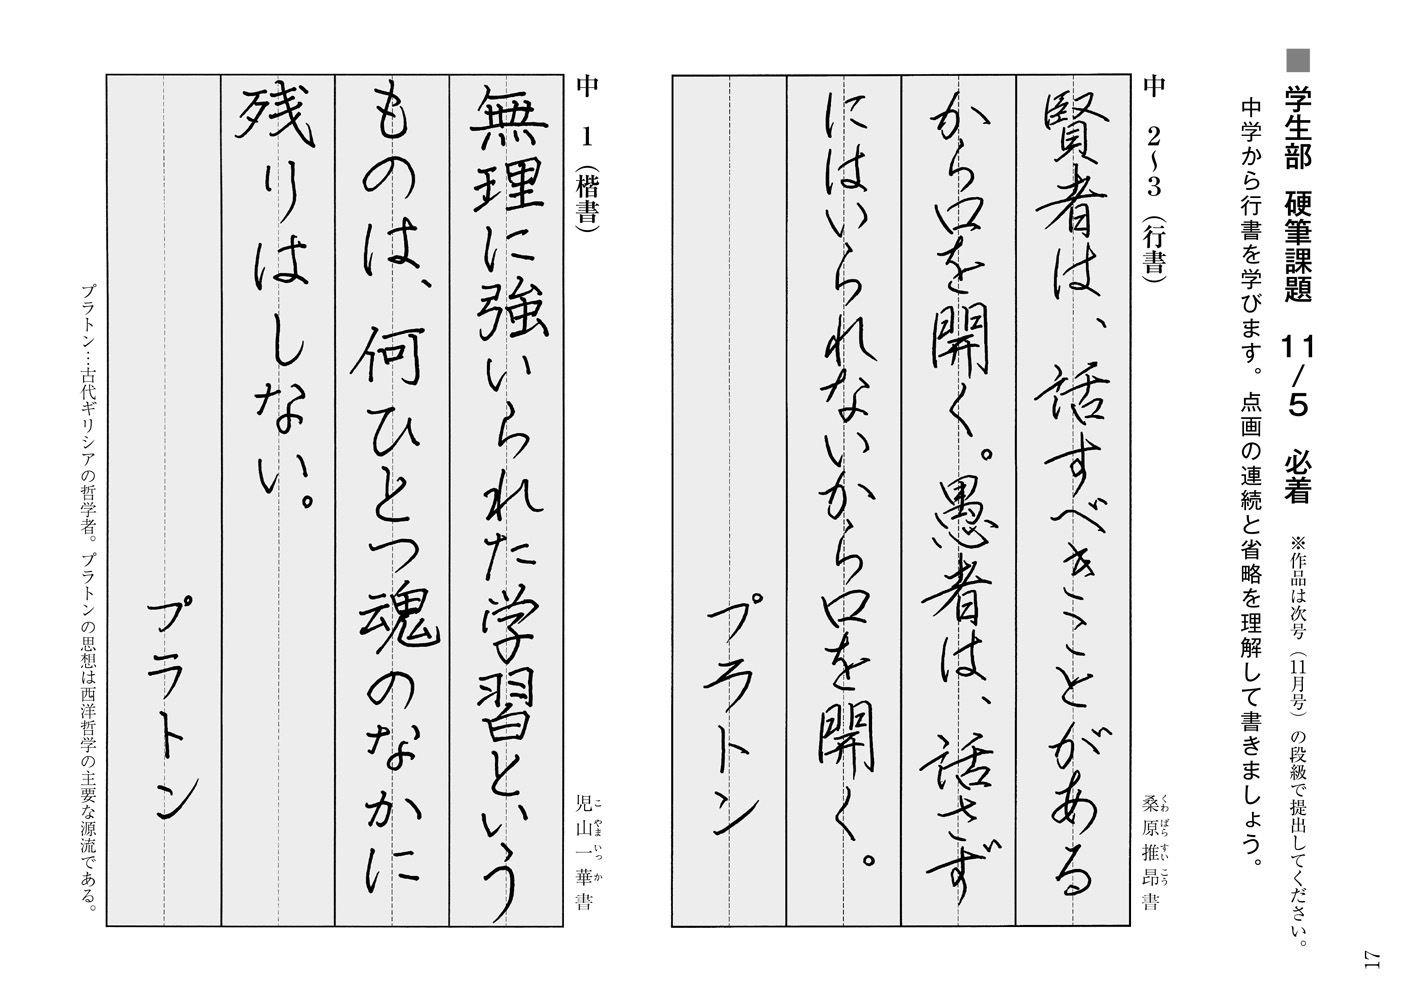 ■学生部 硬筆課題 11/5 必着 ※作品は次号（11月号）の段級で提出してください。
中学から行書を学びます。点画の連続と省略を理解して書きましょう。
中 2〜3（行書）
桑原推昂書
くわばらすいこう
賢者は、話すべきことがある
から口を開く。愚者は、話さず
にはいられないから口を開く。
プラトン
中 1（楷書）
児山一華書
こやまいっか
無理に強いられた学習という
ものは、何ひとつ魂のなかに
残りはしない。
プラトン
プラトン…古代ギリシアの哲学者。プラトンの思想は西洋哲学の主要な源流である。
17